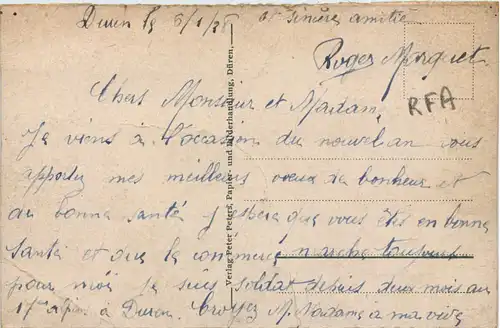 Duren le 5/1/28
et sincère amitié
Roger Morquet
RFA
Chers Monsieur et Madam,
Je viens à l'occasion du nouvel an vous
apporter mes meilleurs voeux de bonheur et
de bonne santé j'espère que vous êtes en bonne
santé et que le commerce marche toujours
pour moi je suis soldat depuis deux mois au
à Duren. Croyez M. Madame a ma vive
Verlag Peter Peters, Papier- und Bilderhandlung, Düren.